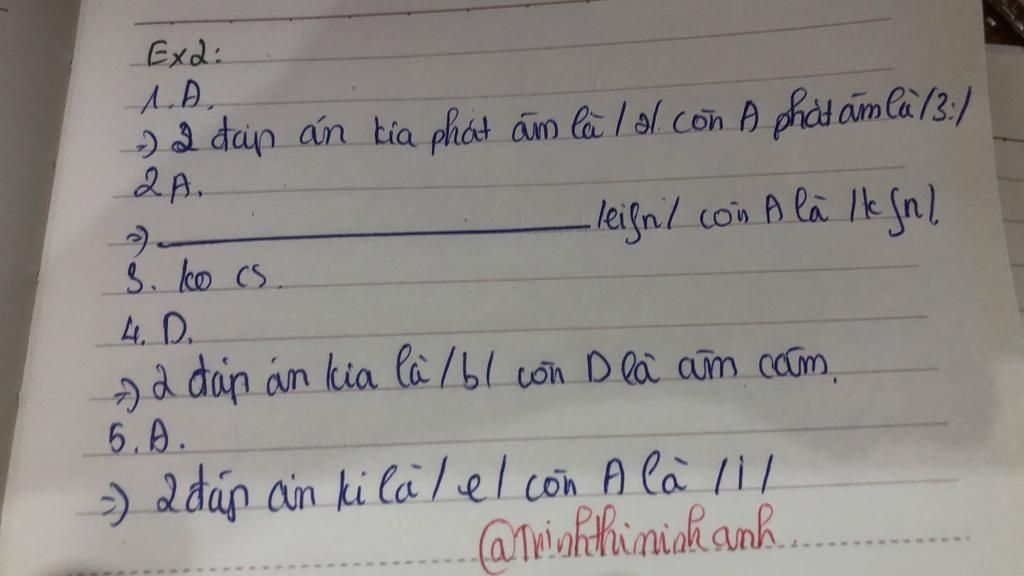 Ex2:
1.A.
=> 2 đáp án kia phát âm là /ə/. còn A phát âm là /3:/
2A.
=> ______ /eiʃn/ còn A là /kʃn/.
3. ko cs.
4. D.
=> 2 đáp án kia là /b/ còn D là âm câm.
5. A.
=> 2 đáp án ki là /e/ còn A là /i/
@Trinhthiminhanh.